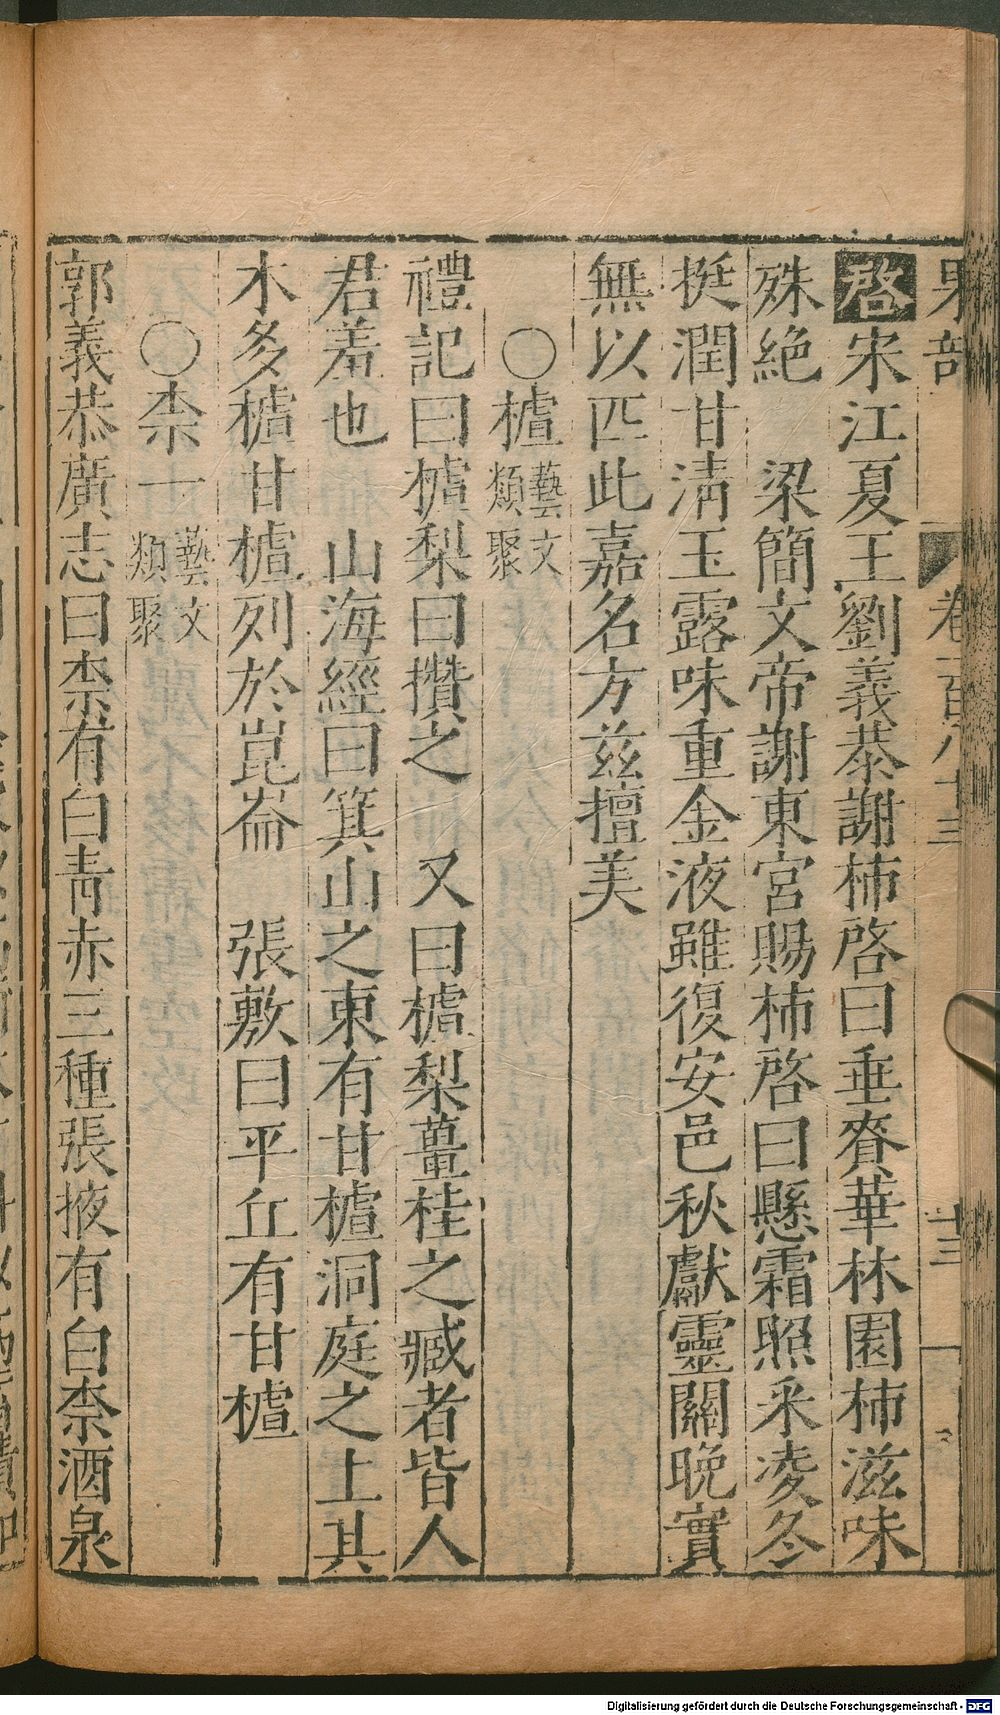 果部 卷一百八十三 十三
啓宋江夏王劉義恭謝柿啓曰垂賚華林園柿滋味
殊絶 梁簡文帝謝東宮賜柿啓曰懸霜照采凌冬
挺潤甘清玉露味重金液雖復安邑秋獻靈關晚實
無以匹此嘉名方兹擅美
○樝藝文類聚
禮記曰樝梨曰攢之 又曰樝梨薑桂之臧者皆人
君羞也 山海經曰箕山之東有甘樝洞庭之上其
木多樝甘樝列於崑崙 張敷曰平丘有甘樝
○柰一藝文類聚
郭義恭廣志曰柰有白青赤三種張掖有白柰酒泉
Digitalisierung gefördert durch die Deutsche Forschungsgemeinschaft - DFG